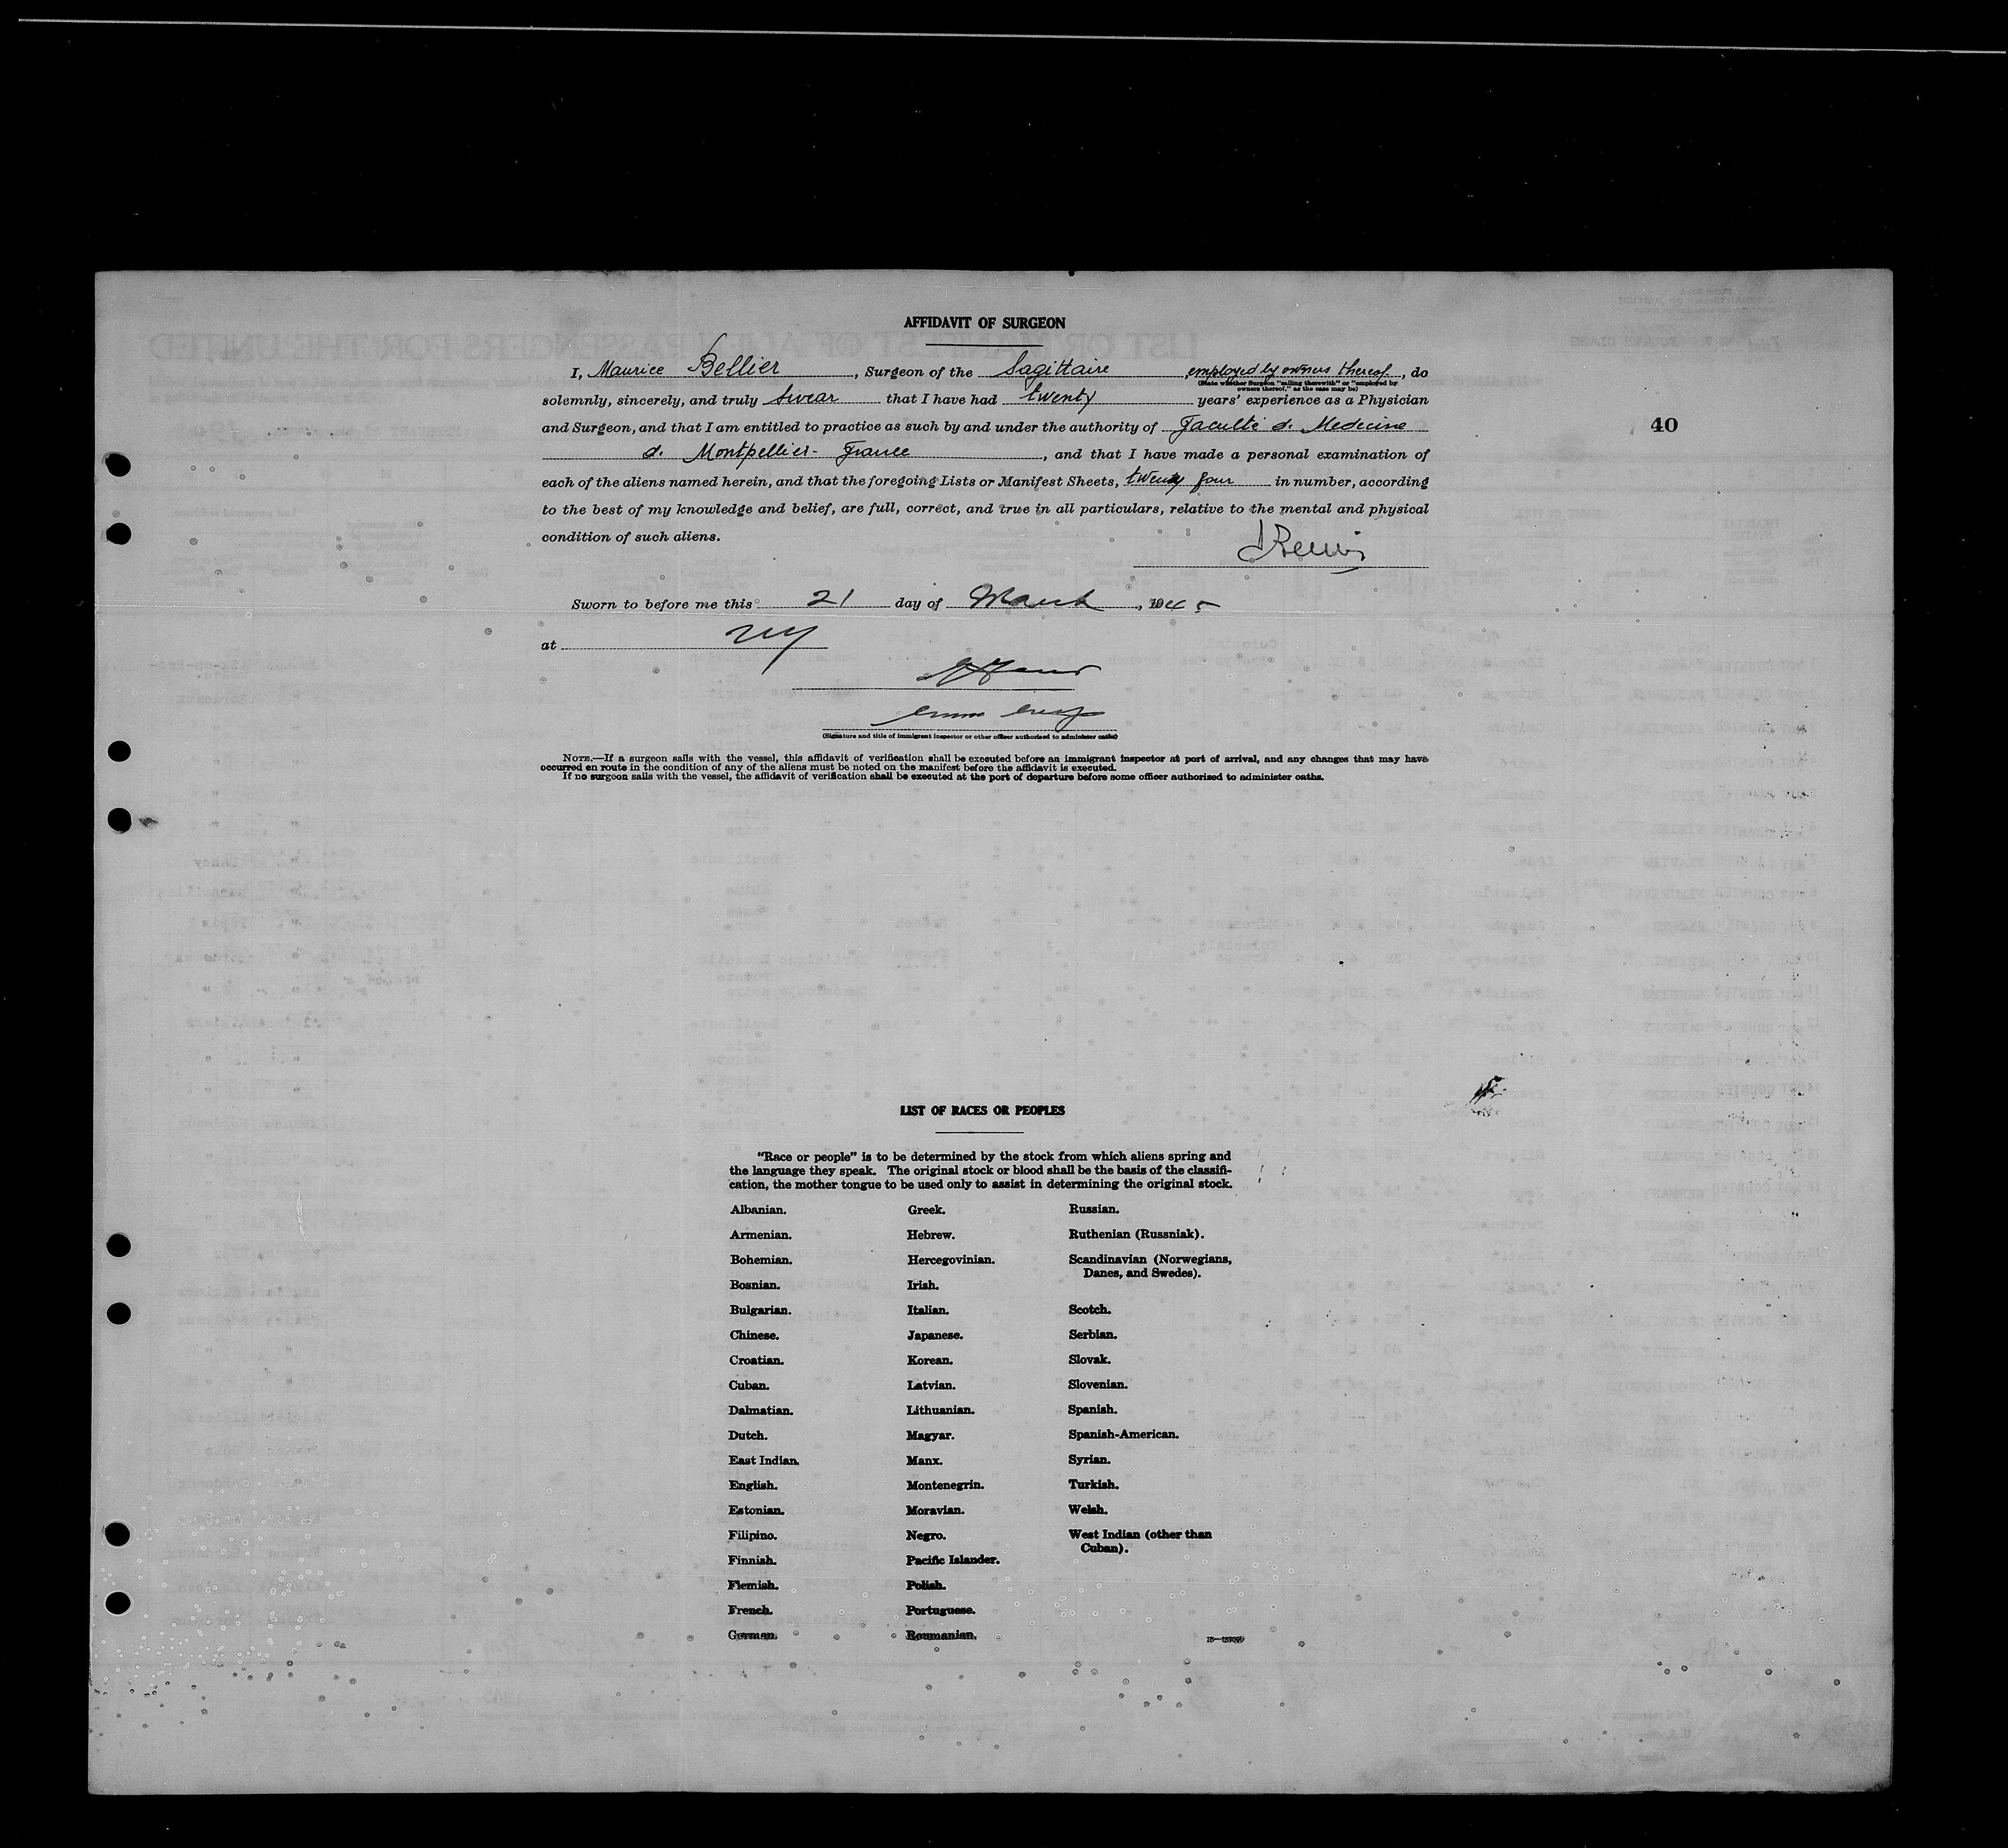 AFFIDAVIT OF SURGEON
I, Maurice Bellier, Surgeon of the Sagittaire, employed by owners thereof, do
(State whether Surgeon "sailing therewith" or "employed by
owners thereof," as the case may be)
solemnly, sincerely, and truly swear that I have had twenty years' experience as a Physician
and Surgeon, and that I am entitled to practice as such by and under the authority of Faculté d. Medecine
d. Montpellier- France, and that I have made a personal examination of
40
each of the aliens named herein, and that the foregoing Lists or Manifest Sheets, twenty four in number, according
to the best of my knowledge and belief, are full, correct, and true in all particulars, relative to the mental and physical
condition of such aliens.
Sworn to before me this 21 day of March, 1945
at NY
(Signature and title of immigrant inspector or other officer authorized to administer oaths)
NOTE.—If a surgeon sails with the vessel, this affidavit of verification shall be executed before an immigrant inspector at port of arrival, and any changes that may have
occurred en route in the condition of any of the aliens must be noted on the manifest before the affidavit is executed.
If no surgeon sails with the vessel, the affidavit of verification shall be executed at the port of departure before some officer authorized to administer oaths.
LIST OF RACES OR PEOPLES
"Race or people" is to be determined by the stock from which aliens spring and
the language they speak. The original stock or blood shall be the basis of the classifi-
cation, the mother tongue to be used only to assist in determining the original stock.
Albanian.
Armenian.
Bohemian.
Bosnian.
Bulgarian.
Chinese.
Croatian.
Cuban.
Dalmatian.
Dutch.
East Indian.
English.
Estonian.
Filipino.
Finnish.
Flemish.
French.
German.
Greek.
Hebrew.
Hercegovinian.
Irish.
Italian.
Japanese.
Korean.
Latvian.
Lithuanian.
Magyar.
Manx.
Montenegrin.
Moravian.
Negro.
Pacific Islander.
Polish.
Portuguese.
Roumanian.
Russian.
Ruthenian (Russniak).
Scandinavian (Norwegians,
Danes, and Swedes).
Scotch.
Serbian.
Slovak.
Slovenian.
Spanish.
Spanish-American.
Syrian.
Turkish.
Welsh.
West Indian (other than
Cuban).